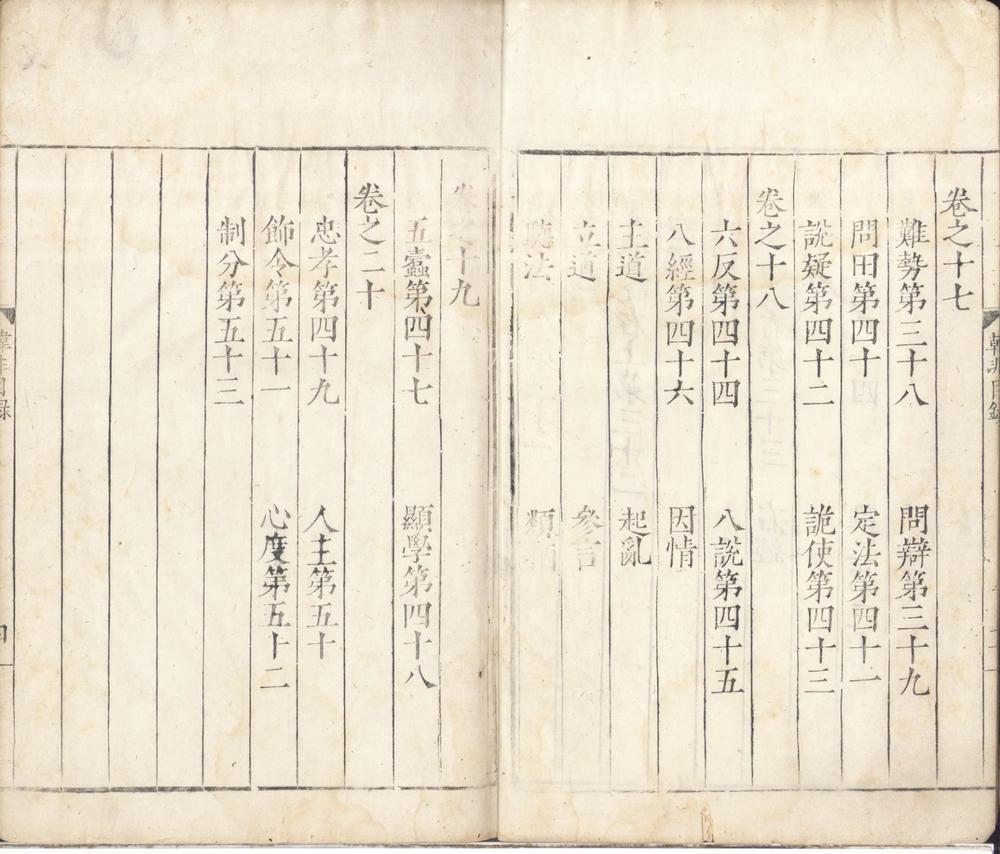 卷之十七
難勢第三十八 問辯第三十九
問田第四十 定法第四十一
說疑第四十二 詭使第四十三
卷之十八
六反第四十四 八說第四十五
八經第四十六 因情
主道 起亂
立道 參言
聽法 類
卷之十九
五蠹第四十七 顯學第四十八
卷之二十
忠孝第四十九 人主第五十
飭令第五十一 心度第五十二
制分第五十三
韓非目錄